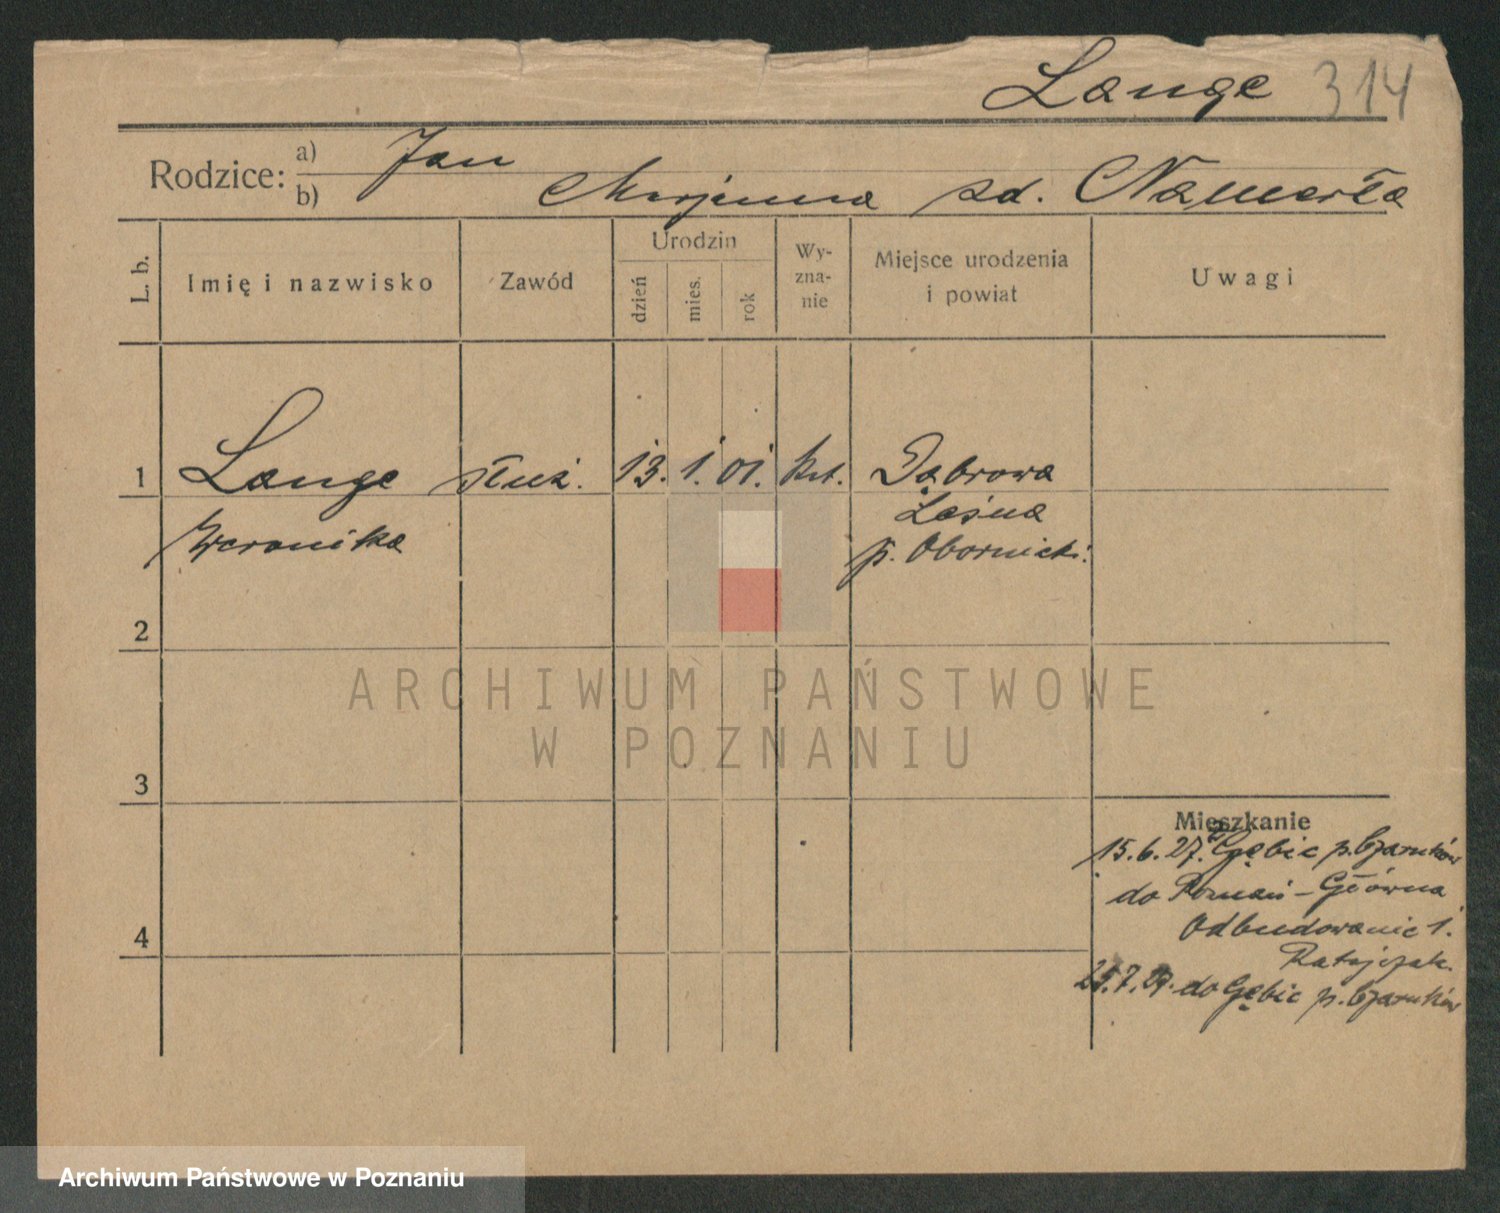 Lange 314
Rodzice: a) Jan
b) Marjanna zd. Namerła
L. b. Imię i nazwisko Zawód Urodzin dzień mies. rok Wy-zna-nie Miejsce urodzenia i powiat Uwagi
1 Lange służ. 13. 1. 01. kat. Dąbrowa
Weronika Leśna
p. Obornicki.
2
3
Mieszkanie
15.6.27. z Gębic p. Czarnków
do Poznań - Główna
Odbudowanie 1.
Ratajczak.
4
25.7.27. do Gębic p. Czarnków
ARCHIWUM PAŃSTWOWE
W POZNANIU
Archiwum Państwowe w Poznaniu